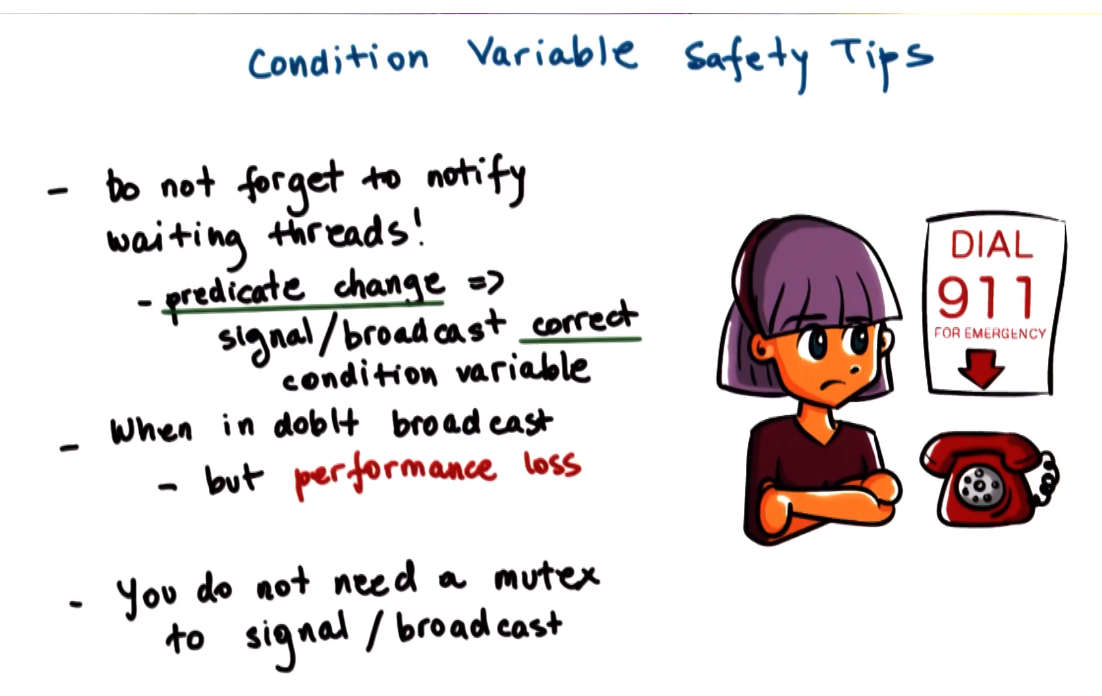 Condition Variable Safety Tips
- Do not forget to notify
waiting threads!
- predicate change =>
signal/broadcast correct
condition variable
- When in doblt broadcast
- but performance loss
- You do not need a mutex
to signal / broadcast
DIAL
911
FOR EMERGENCY